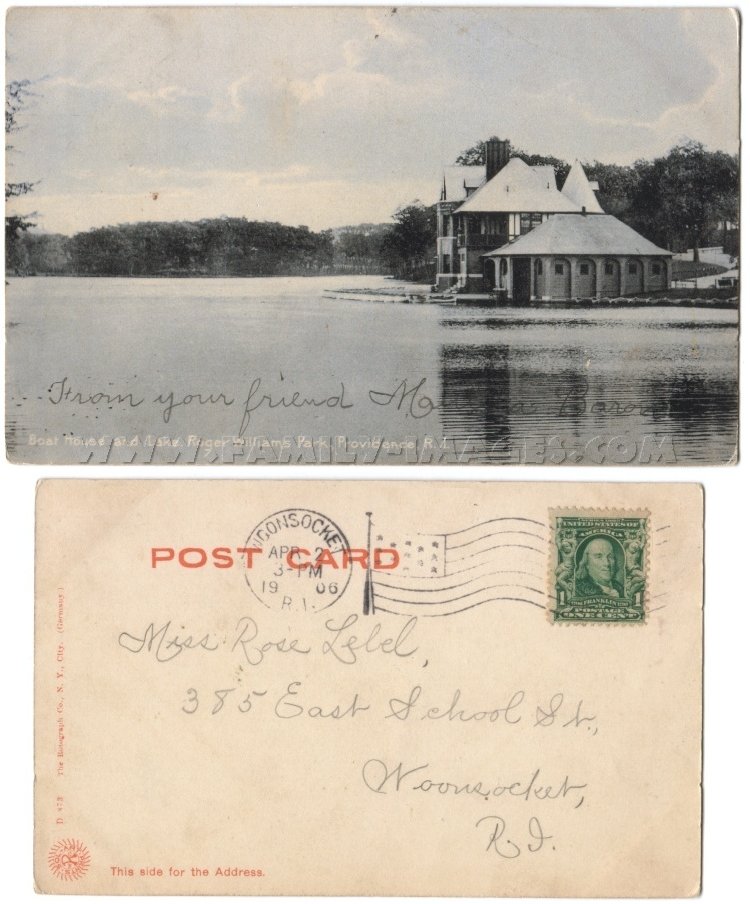 From your friend
Boat House and Lake, Roger Williams Park, Providence, R. I.
WWW.FAMILY-IMAGES.COM
POST CARD
WOONSOCKET
APR 2
3-PM
1906
R.I.
UNITED STATES OF
AMERICA
FRANKLIN
1 POSTAGE 1
ONE CENT
Miss Rose Lebel,
385 East School St.,
Woonsocket,
R.I.
D 873 The Rotograph Co., N. Y. City. (Germany.)
This side for the Address.